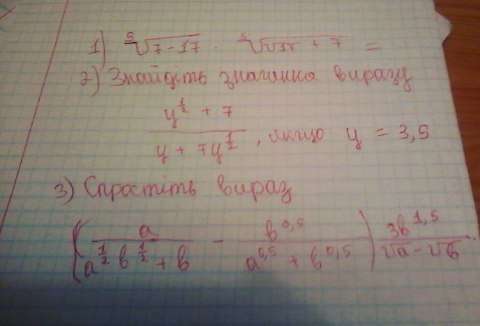 1) ⁵√(7 - 17) · ⁵√(√17 + 7) =
2) Знайдіть значення виразу
(y^(1/2) + 7) / (y + 7y^(1/2)), якщо y = 3,5
3) Спростіть вираз
(a / (a^(1/2) b^(1/2) + b) - b^(0,5) / (a^(0,5) + b^(0,5))) 3b^(1,5) / (√a - √b)